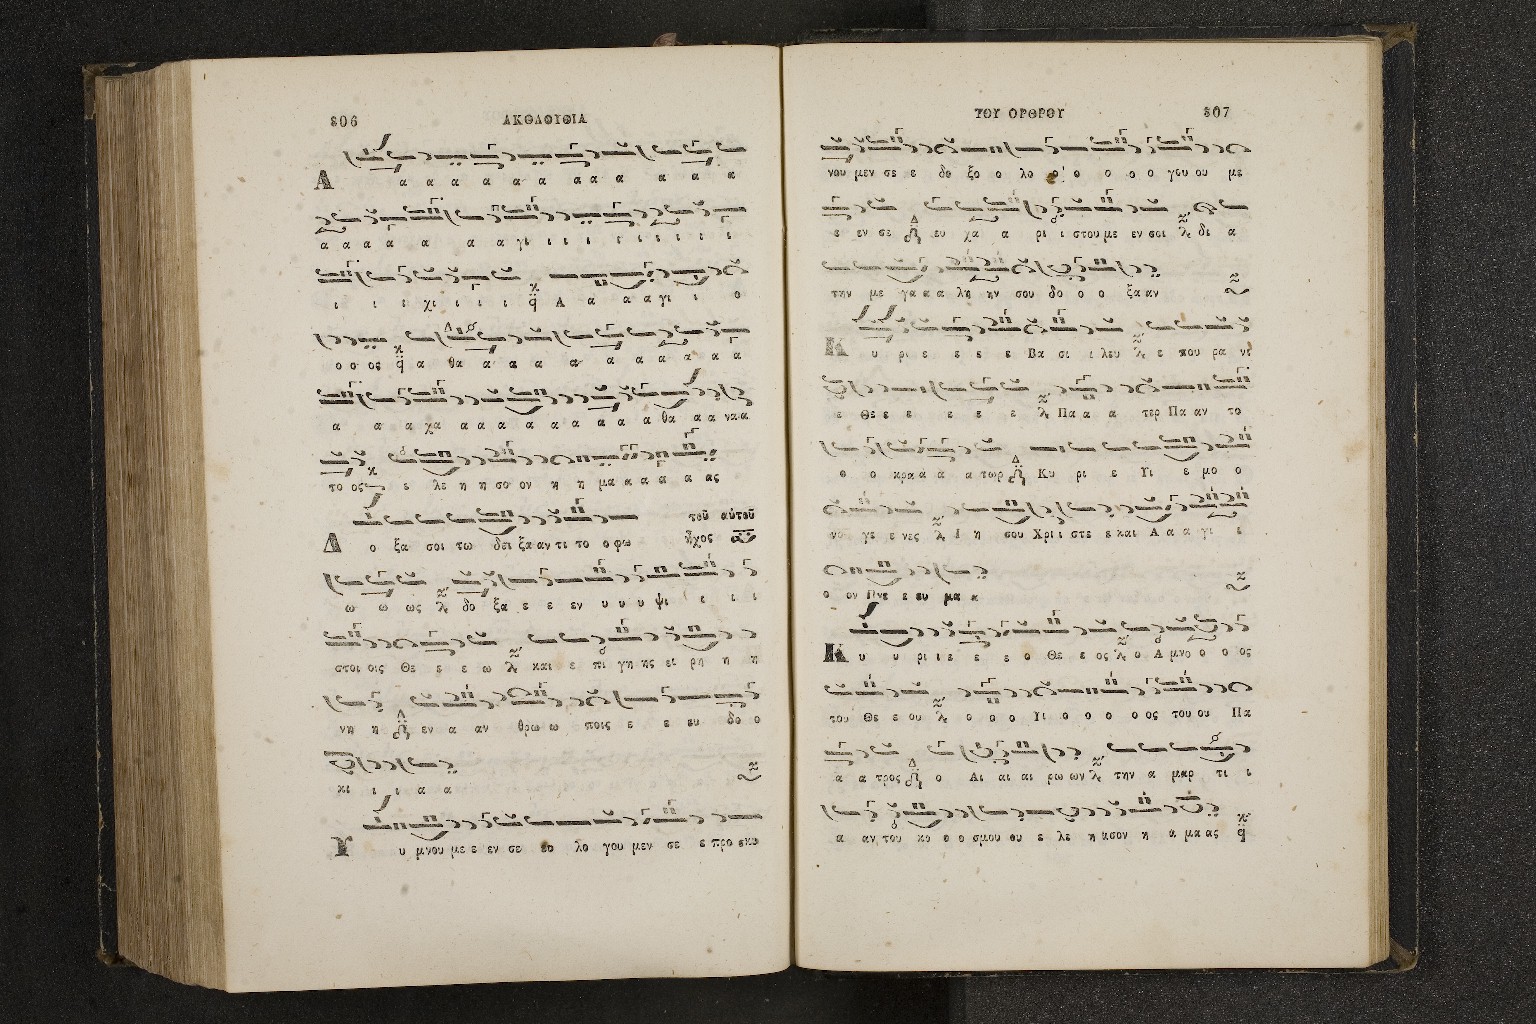 306 ΑΚΟΛΟΥΘΙΑ
Α α α α α α α α α α α α α
α α α α α α α γι ι ι ι ι ι ι ι ι ι
ι ι ι χι ι ι ι Α α α α γι ι ο
ο ο ος α θα α α α α α α α α α α
α α α χα α α α α α α α α α α θα α α να α
το ος ε λε η η σο ον η η μα α α α α ας
τοῦ αὐτοῦ
Δ ο ξα σοι τω δει ξα αν τι το ο φω ἦχος
ω ω ως δο ξα ε ε εν υ υ υ ψι ι ι ι
στοι οις Θε ε ε ε ω και ε πι γη ης ει ρη η η
νη η εν α αν θρω ω ποις ε ε ευ δο ο
κι ι ι α α
Υ υ μνου με ε εν σε ευ λο γου μεν σε ε προ σκυ
ΤΟΥ ΟΡΘΡΟΥ 307
νου μεν σε ε δο ξο ο λο ο ο ο ο ο γου ου με
ε εν σε ευ χα α ρι ι στου με εν σοι δι α
την με γα α α λη ην σου δο ο ο ξα αν
Κ υ ρι ε ε ε ε Βα σι ι λευ ε που ρα νι
ε Θε ε ε ε ε ε ε Πα α α τερ Πα αν το
ο ο κρα α α α τωρ Κυ ρι ε Υι ε μο ο
νο γε ε νες Ι η σου Χρι ι στε ε και Α α α γι ι
ο ον Πνε ε ευ μα α
Κ υ υ ρι ι ε ε ε ο Θε ε ος ο Α μνο ο ο ος
του Θε ε ου ο ο ο Υι ο ο ο ο ος του ου Πα
α α τρος ο Αι αι αι ρω ων την α μαρ τι ι
α αν του κο ο ο σμου ου ε λε η ησον η α μα ας